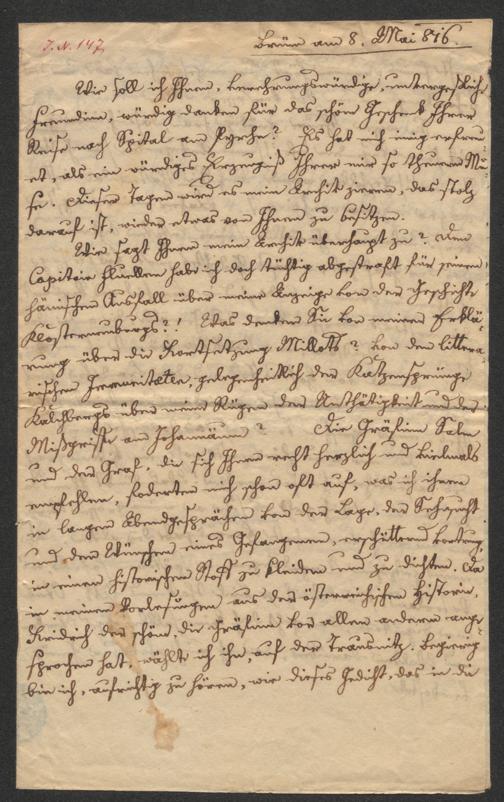 J. N. 147
Brünn am 8. Mai 816.
Wie soll ich Ihnen, verehrungswürdige, unvergeßliche
Freundinn, würdig danken für das schöne Geschenk Ihrer
Reise nach Spital am Pyrhn? Es hat mich innig erfreu-
et, als ein würdiges Erzeugniß Ihrer mir so theuern Mu-
se. Dieser Tagen wird es mein Archiv zieren, das stolz
darauf ist, wieder etwas von Ihnen zu besitzen.
Wie sagt Ihnen mein Archiv überhaupt zu? Den
Capitain habe ich doch tüchtig abgestraft für seinen
hämischen Ausfall über meine Anzeige von der Geschichte
Klosterneuburgs?! Was denken Sie von meiner Erklä-
rung über die Fortsetzung Millots? von den littera-
rischen gelegenheitlich der Katzensprünge
Kalchbergs über meine Rügen der Unthätigkeit und der
Mißgriffe am Johannäum? Die Gräfinn Salm
und der Graf, die sich Ihnen recht herzlich und vielmals
empfehlen, foderten mich schon oft auf, was ich ihnen
in langen Abendgesprächen von der Lage, der Sehnsucht
und den Wünschen eines Gefangenen, erschütternd vortrug,
in einen historischen Stoff zu kleiden und zu dichten. Da
in meinen Vorlesungen aus der österreichischen Historie,
Fridrich der schöne, die Gräfinn vor allen andern ange-
sprochen hat, wählte ich ihn, auf der Trausnitz. Begierig
bin ich, aufrichtig zu hören, wie dieses Gedicht, das in die